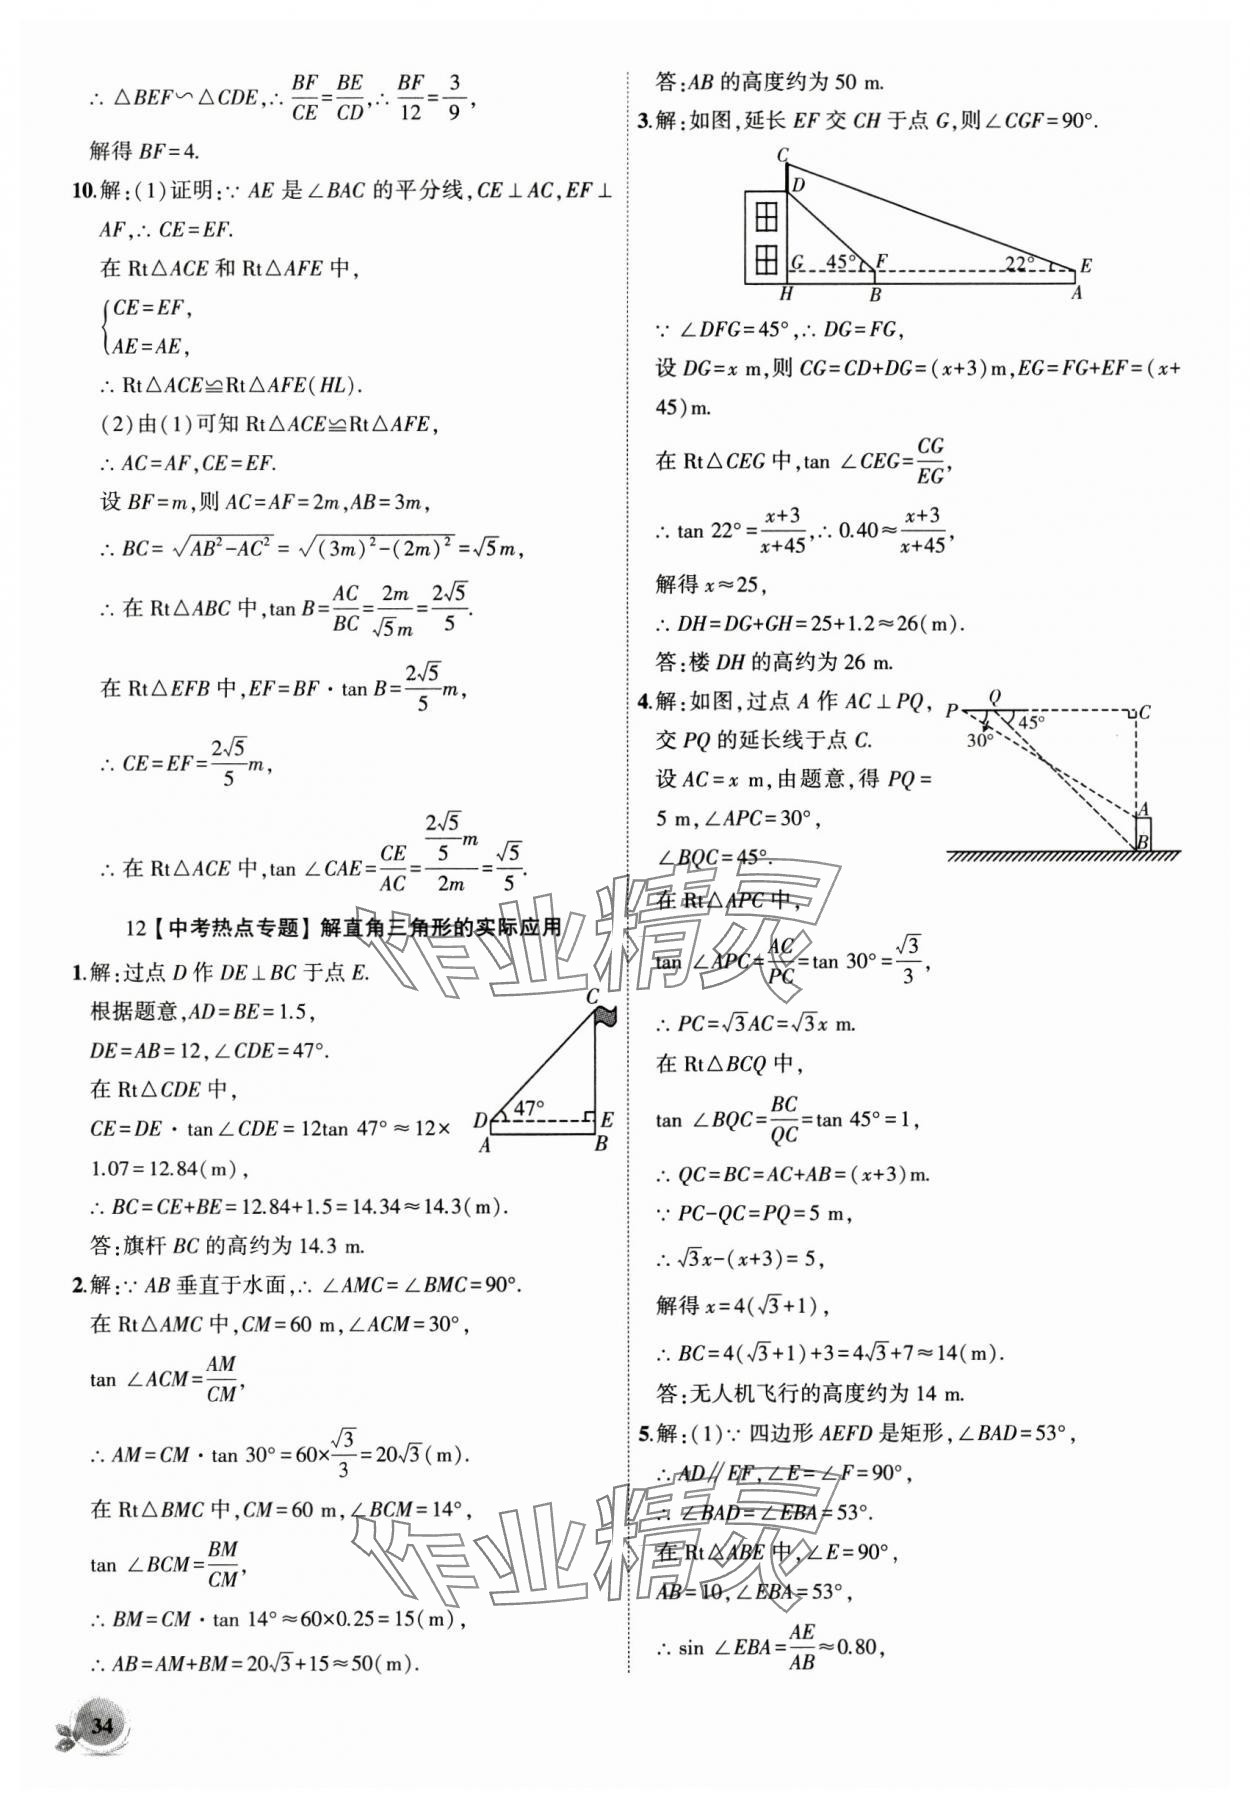 ∴ △BEF∽△CDE,∴ BF/CE=BE/CD,∴ BF/12=3/9,
解得 BF=4.
10.解:(1)证明:∵ AE 是∠BAC 的平分线,CE⊥AC,EF⊥
AF,∴ CE=EF.
在 Rt△ACE 和 Rt△AFE 中,
{CE=EF,
AE=AE,
∴ Rt△ACE≌Rt△AFE(HL).
(2)由(1)可知 Rt△ACE≌Rt△AFE,
∴ AC=AF,CE=EF.
设 BF=m,则 AC=AF=2m,AB=3m,
∴ BC=√(AB²-AC²)=√((3m)²-(2m)²)=√5m,
∴ 在 Rt△ABC 中,tan B=AC/BC=2m/√5m=2√5/5.
在 Rt△EFB 中,EF=BF·tan B=2√5/5m,
∴ CE=EF=2√5/5m,
∴ 在 Rt△ACE 中,tan ∠CAE=CE/AC=(2√5/5m)/2m=√5/5.
12【中考热点专题】解直角三角形的实际应用
1.解:过点 D 作 DE⊥BC 于点 E.
根据题意,AD=BE=1.5,
DE=AB=12,∠CDE=47°.
在 Rt△CDE 中,
CE=DE·tan∠CDE=12tan 47°≈12×
1.07=12.84(m),
C
D
47°
E
A
B
∴ BC=CE+BE=12.84+1.5=14.34≈14.3(m).
答:旗杆 BC 的高约为 14.3 m.
2.解:∵ AB 垂直于水面,∴ ∠AMC=∠BMC=90°.
在 Rt△AMC 中,CM=60 m,∠ACM=30°,
tan ∠ACM=AM/CM,
∴ AM=CM·tan 30°=60×√3/3=20√3(m).
在 Rt△BMC 中,CM=60 m,∠BCM=14°,
tan ∠BCM=BM/CM,
∴ BM=CM·tan 14°≈60×0.25=15(m),
∴ AB=AM+BM=20√3+15≈50(m).
34
答:AB 的高度约为 50 m.
3.解:如图,延长 EF 交 CH 于点 G,则∠CGF=90°.
C
D
G 45° F 22° E
H B A
∵ ∠DFG=45°,∴ DG=FG,
设 DG=x m,则 CG=CD+DG=(x+3)m,EG=FG+EF=(x+
45)m.
在 Rt△CEG 中,tan ∠CEG=CG/EG,
∴ tan 22°=(x+3)/(x+45),∴ 0.40≈(x+3)/(x+45),
解得 x≈25,
∴ DH=DG+GH=25+1.2≈26(m).
答:楼 DH 的高约为 26 m.
4.解:如图,过点 A 作 AC⊥PQ,
交 PQ 的延长线于点 C.
设 AC=x m,由题意,得 PQ=
5 m,∠APC=30°,
∠BQC=45°.
P Q C
30° 45°
A
B
在 Rt△APC 中,
tan ∠APC=AC/PC=tan 30°=√3/3,
∴ PC=√3AC=√3x m.
在 Rt△BCQ 中,
tan ∠BQC=BC/QC=tan 45°=1,
∴ QC=BC=AC+AB=(x+3)m.
∵ PC-QC=PQ=5 m,
∴ √3x-(x+3)=5,
解得 x=4(√3+1),
∴ BC=4(√3+1)+3=4√3+7≈14(m).
答:无人机飞行的高度约为 14 m.
5.解:(1)∵ 四边形 AEFD 是矩形,∠BAD=53°,
∴ AD∥EF,∠E=∠F=90°,
∴ ∠BAD=∠EBA=53°.
在 Rt△ABE 中,∠E=90°,
AB=10,∠EBA=53°,
∴ sin ∠EBA=AE/AB≈0.80,
作业精灵
作业精灵